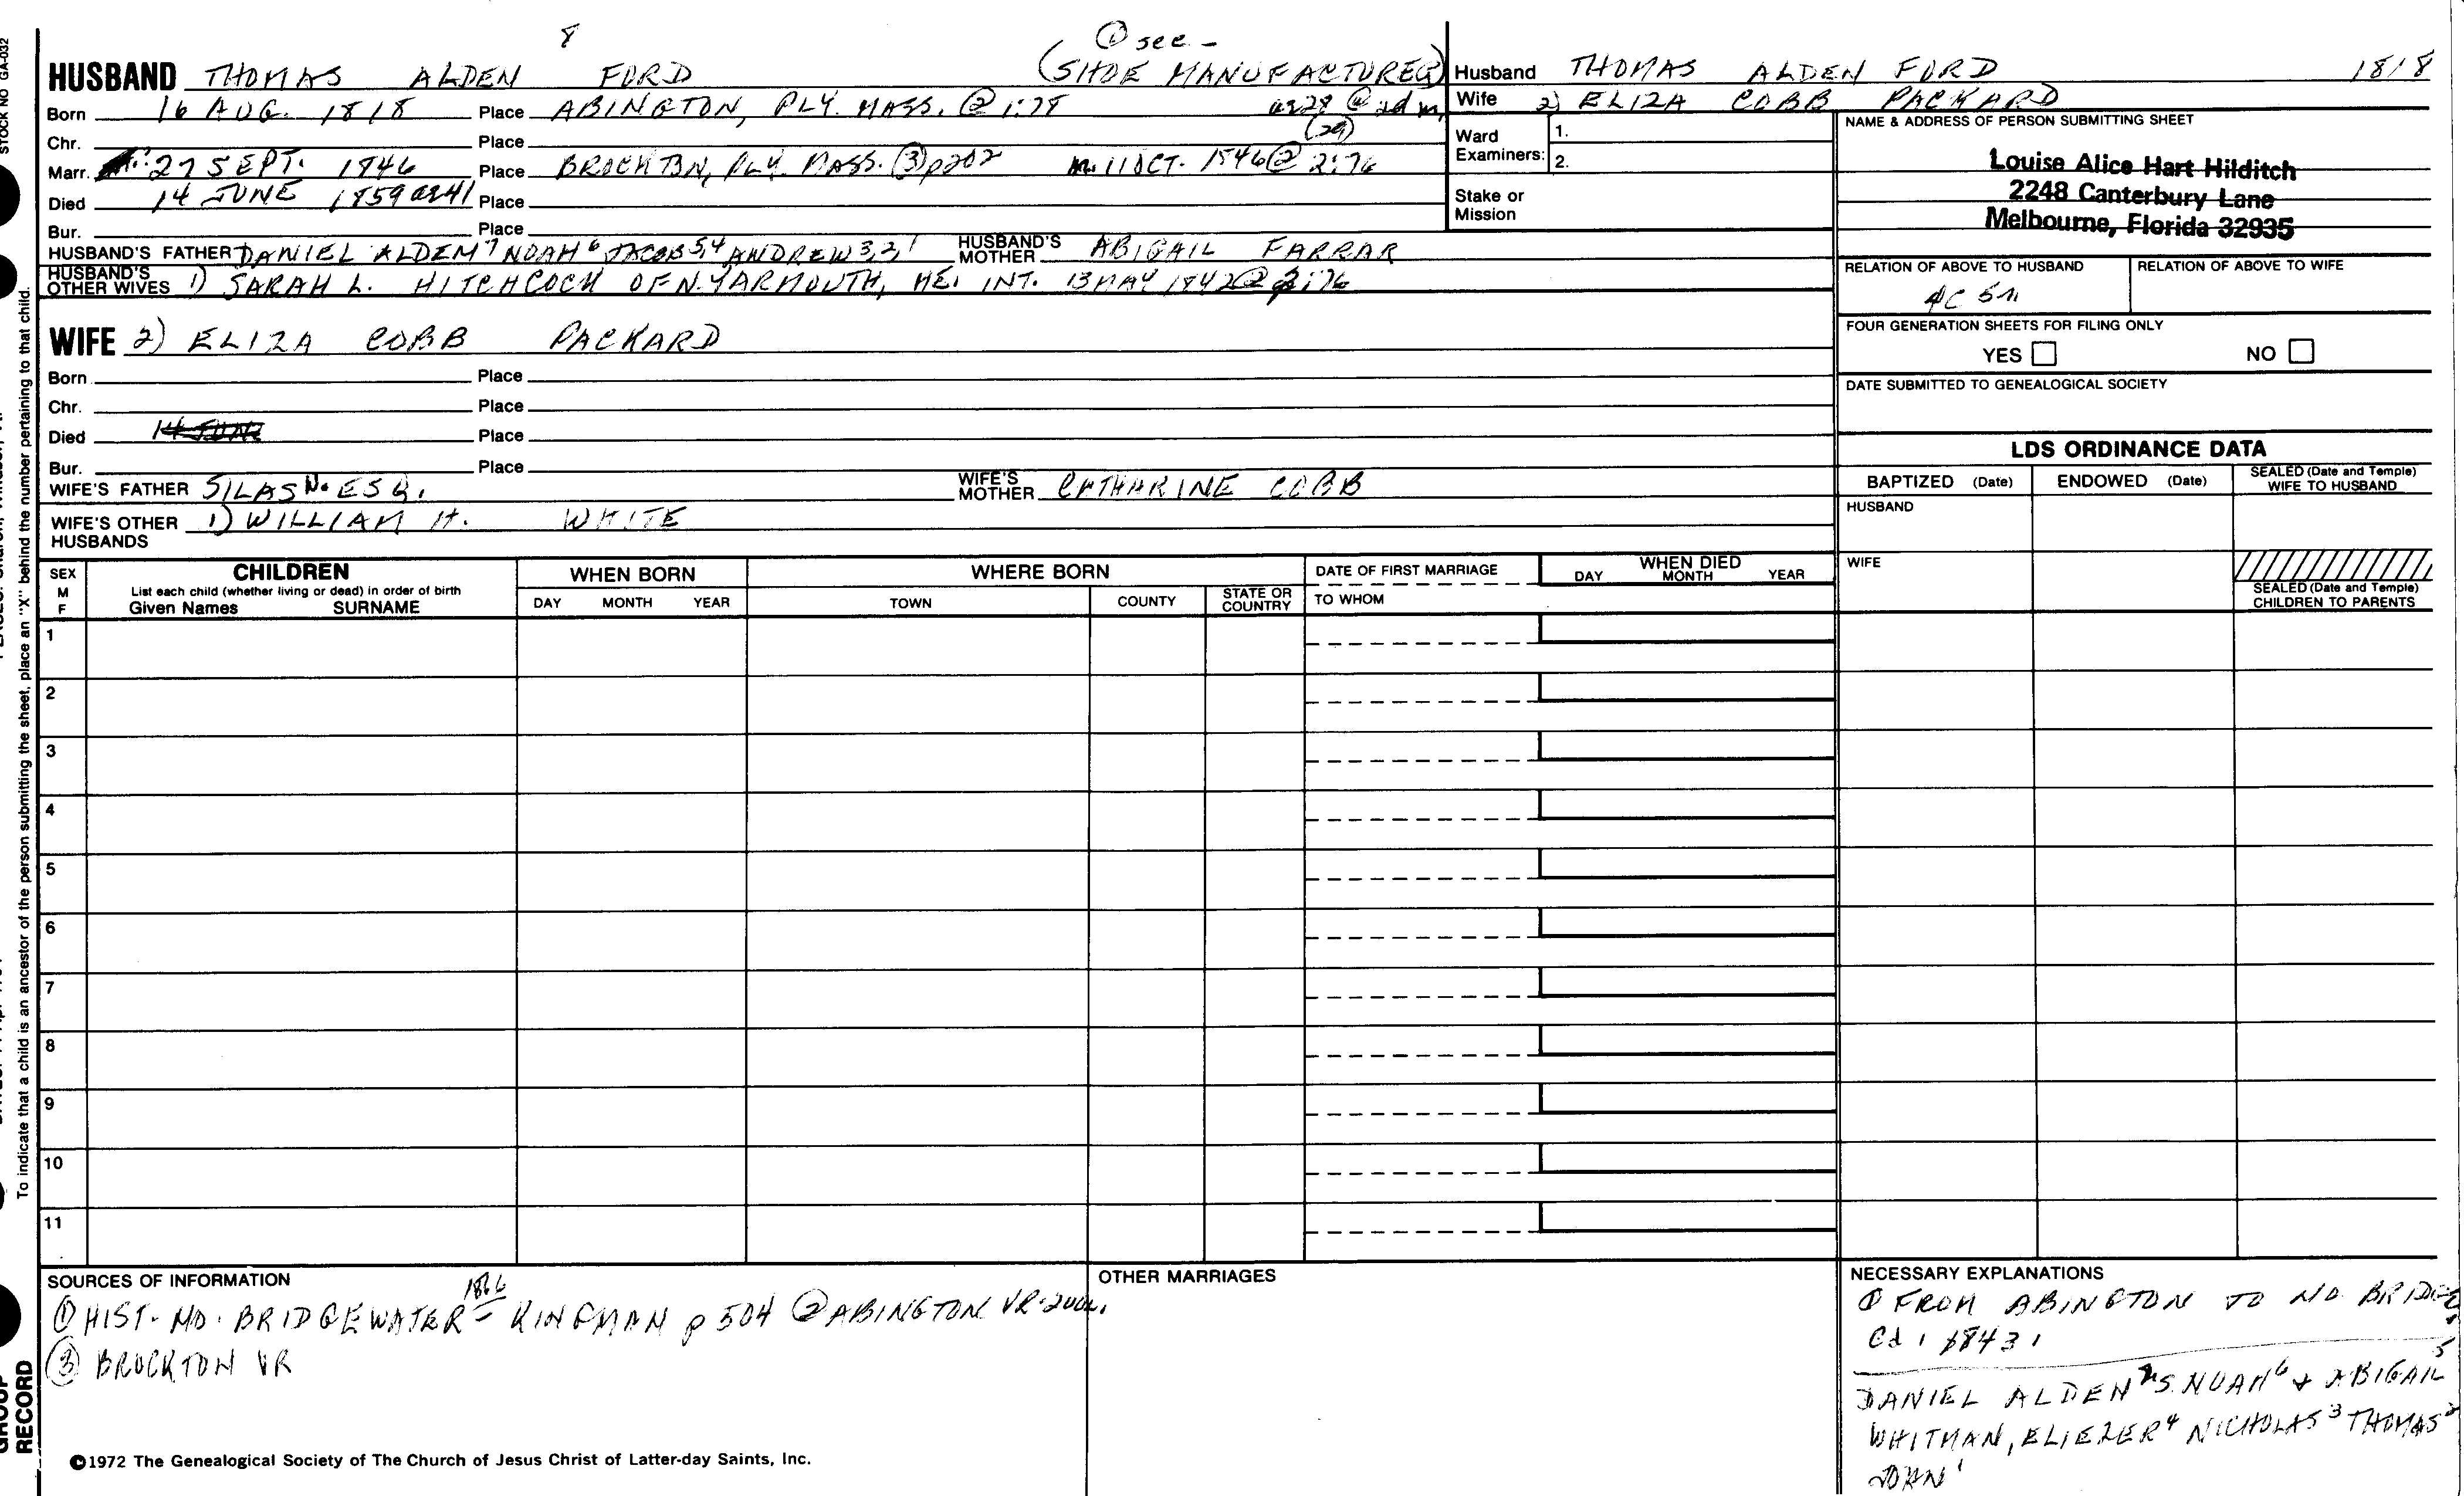 8
① see -
HUSBAND THOMAS ALDEN FORD (SHOE MANUFACTURER)
Born 16 AUG. 1818 Place ABINGTON, PLY. MASS. ② 1:78 ae 28 @ 2d m,
(29)
Chr. Place
Marr. 27 SEPT. 1846 Place BROCKTON, PLY. MASS. ③ p202 m. 11 OCT. 1846 ② 2:76
Died 14 JUNE 1859 ae 41 Place
Bur. Place
HUSBAND'S FATHER DANIEL ALDEN⁷ NOAH⁶ JACOB⁵,⁴ ANDREW³,²,¹ HUSBAND'S MOTHER ABIGAIL FARRAR
HUSBAND'S OTHER WIVES 1) SARAH L. HITCHCOCK OF N. YARMOUTH, ME. INT. 13 MAY 1842 ② 2:76
WIFE 2) ELIZA COBB PACKARD
Born Place
Chr. Place
Died 14 JUNE Place
Bur. Place
WIFE'S FATHER SILAS N. ESQ. WIFE'S MOTHER CATHARINE COBB
WIFE'S OTHER HUSBANDS 1) WILLIAM H. WHITE
Husband THOMAS ALDEN FORD 1818
Wife 2) ELIZA COBB PACKARD
Ward Examiners: 1.
2.
Stake or Mission
NAME & ADDRESS OF PERSON SUBMITTING SHEET
Louise Alice Hart Hilditch
2248 Canterbury Lane
Melbourne, Florida 32935
RELATION OF ABOVE TO HUSBAND RELATION OF ABOVE TO WIFE
4C 5R
FOUR GENERATION SHEETS FOR FILING ONLY
YES NO
DATE SUBMITTED TO GENEALOGICAL SOCIETY
LDS ORDINANCE DATA
BAPTIZED (Date) ENDOWED (Date) SEALED (Date and Temple) WIFE TO HUSBAND
HUSBAND
WIFE
SEALED (Date and Temple) CHILDREN TO PARENTS
SEX M F
CHILDREN
List each child (whether living or dead) in order of birth
Given Names SURNAME
WHEN BORN
DAY MONTH YEAR
WHERE BORN
TOWN COUNTY STATE OR COUNTRY
DATE OF FIRST MARRIAGE
TO WHOM
WHEN DIED
DAY MONTH YEAR
1
2
3
4
5
6
7
8
9
10
11
SOURCES OF INFORMATION
1866
① HIST. NO. BRIDGEWATER - KINGMAN p 504 ② ABINGTON VR-2vol.
③ BROCKTON VR
OTHER MARRIAGES
NECESSARY EXPLANATIONS
① FROM ABINGTON TO NO BRIDGE
Cd. 1843.
DANIEL ALDEN⁷ S. NOAH⁶ + ABIGAIL⁵
WHITMAN, ELIEZER⁴ NICHOLAS³ THOMAS²
JOHN¹
©1972 The Genealogical Society of The Church of Jesus Christ of Latter-day Saints, Inc.
STOCK NO GA-032
To indicate that a child is an ancestor of the person submitting the sheet, place an "X" behind the number pertaining to that child.
GROUP
RECORD